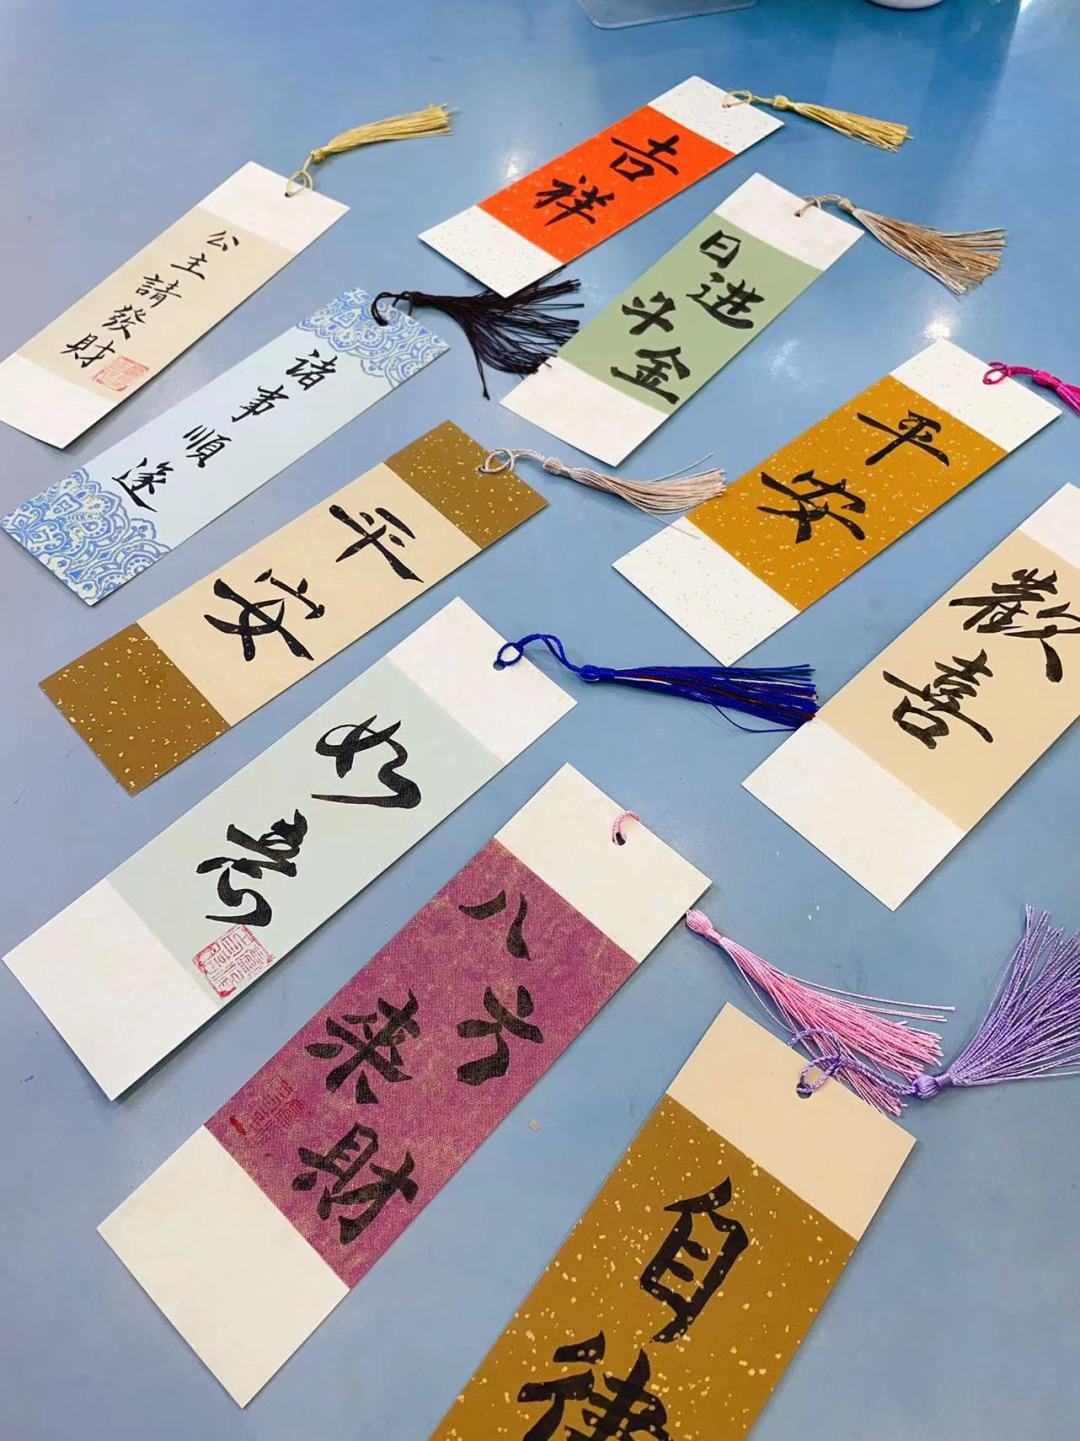 吉祥
公主請發財
日进斗金
诸事順遂
平安
平安
歡喜
如意
八方来財
自律